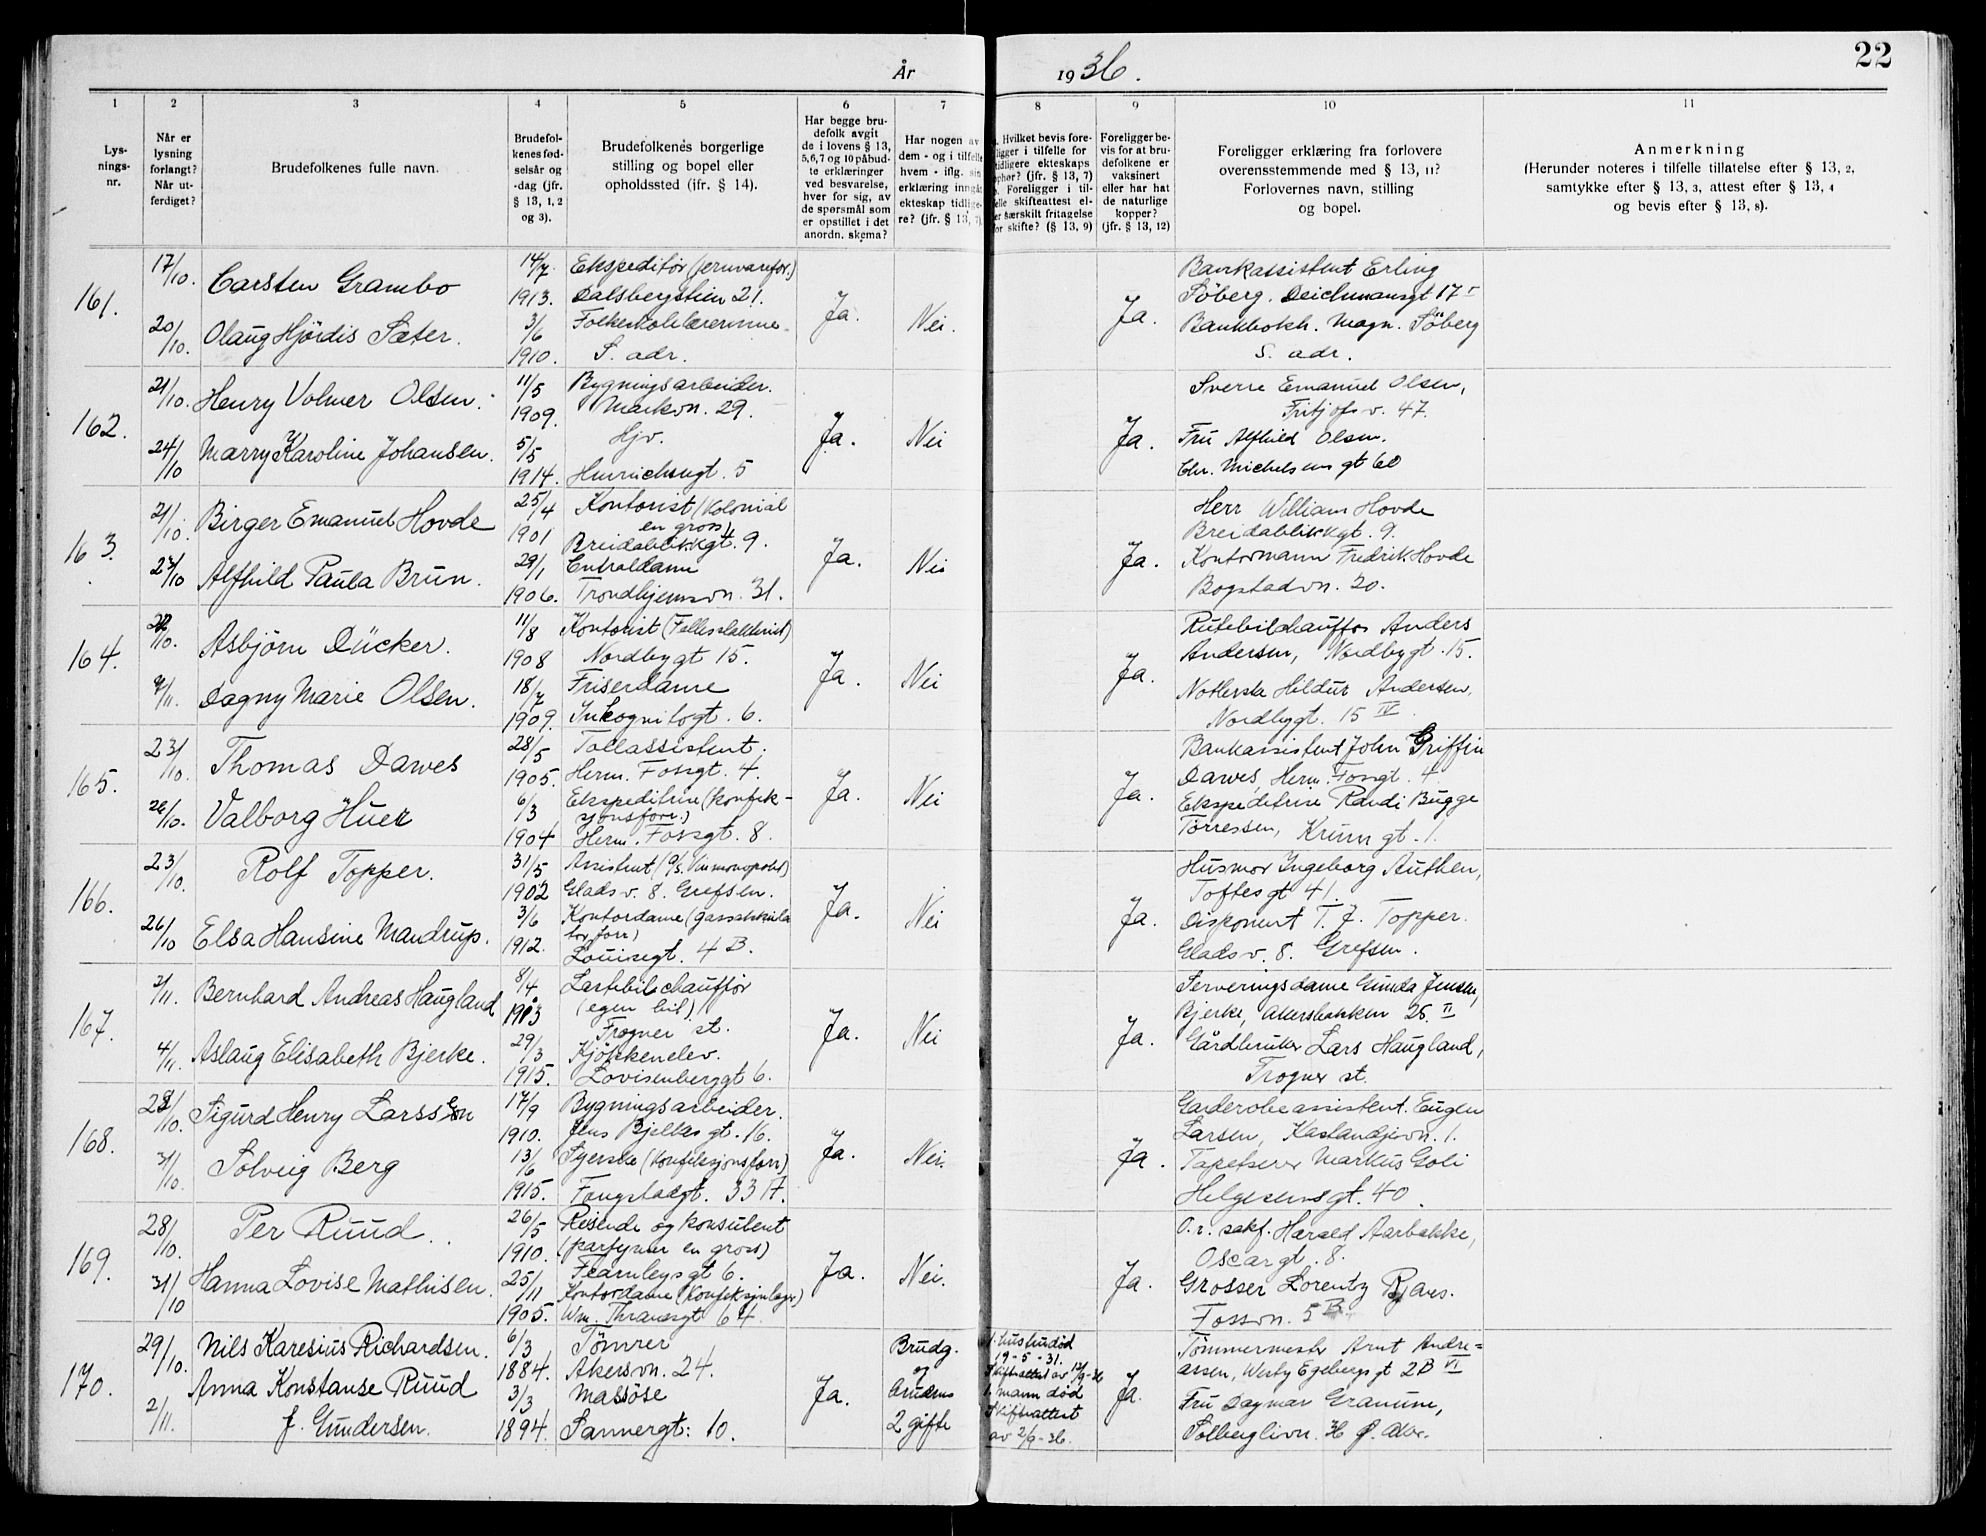 År 1936.
22
1 2 3 4 5 6 7 8 9 10 11
Lys-
nings-
nr.
Når er
lysning
forlangt?
Når ut-
ferdiget?
Brudefolkenes fulle navn.
Brudefol-
kenes fød-
selsår og
-dag (jfr.
§ 13, 1, 2
og 3).
Brudefolkenes borgerlige
stilling og bopel eller
opholdssted (jfr. § 14).
Har begge bru-
defolk avgit
de i lovens § 13,
5,6,7 og 10 påbud-
te erklæringer
ved besvarelse,
hver for sig, av
de spørsmål som
er opstillet i det
anordn. skema?
Har nogen av
dem - og i tilfelle
hvem - iflg. sin
erklæring inngåt
ekteskap tidlige-
re? (jfr. § 13, 7)
Hvilket bevis fore-
ligger i tilfelle for
tidligere ekteskaps
ophør? (jfr. § 13, 7)
Foreligger i til-
felle skifteattest el-
ler særskilt fritagelse
for skifte? (§ 13, 9)
Foreligger be-
vis for at bru-
defolkene er
vaksinert
eller har hat
de naturlige
kopper?
(jfr. § 13, 12)
Foreligger erklæring fra forlovere
overensstemmende med § 13, 11?
Forlovernes navn, stilling
og bopel.
Anmerkning
(Herunder noteres i tilfelle tillatelse efter § 13, 2,
samtykke efter § 13, 3, attest efter § 13, 4
og bevis efter § 13, 8).
161.
17/10.
Carsten Grambo
14/7.
1913.
Ekspeditør (jernvarefor.)
Dalsbergstien 21.
20/10.
Olaug Hjördis Sæter.
3/6
1910.
Folkeskolelærerinne.
S. adr.
Ja.
Nei.
Ja.
Bankassistent Erling
Söberg. Deichmansgt 17 I
Bankbokh. Magn. Söberg
S. adr.
162.
21/10.
Henry Volmer Olsen.
11/5
1909.
Bygningsarbeider.
Markvn. 29.
24/10
Marry Karoline Johansen.
5/5
1914.
Hjv.
Hinrichsngt. 5
Ja.
Nei
Ja.
Sverre Emanuel Olsen,
Fritjofs v. 47.
Fru Alfhild Olsen.
Chr. Michelsens gt 60
163.
21/10.
Birger Emanuel Hovde
25/4
1901
Kontorist (Kolonial
en gross),
Breidablikkgt. 9.
24/10
Alfhild Paula Brun.
29/1
1906.
Entraldame
Trondhjemsvn. 31.
Ja.
Nei
Ja.
Herr William Hovde
Breidablikkgt. 9.
Kontormann Fredrik Hovde
Bogstadvn. 20.
164.
22/10.
Asbjörn Dücker.
11/8
1908
Kontorist (Fellesslakteriet)
Nordbygt 15.
4/11.
Dagny Marie Olsen.
18/7
1909.
Friserdame
Inkognitogt. 6.
Ja.
Nei
Ja.
Rutebilchauffør Anders
Andersen, Nordbygt. 15.
Hildur Andersen,
Nordbygt. 15 IV
165.
23/10.
Thomas Dawes
28/5
1905.
Tollassistent.
Herm. Fossgt. 4.
26/10.
Valborg Huer
6/3
1904
Ekspeditrise (konfek-
sjonsforr.)
Herm. Fossgt. 8.
Ja.
Nei
Ja.
Bankassistent John Griffin
Dawes, Herm. Fossgt. 4.
Ekspeditrise Randi Bugge
Torressen, Krumgt. 1.
166.
23/10.
Rolf Topper.
31/5
1902
Assistent (A/S. Vinmonopolet)
Glads v. 8. Grefsen.
26/10
Elsa Hansine Mandrup.
3/6
1912.
Kontordame (gassakkula
tor forr)
Louisegt. 4 B.
Ja.
Nei
Ja.
Husmor Ingeborg Authen,
Toftes gt 41.
Disponent T. J. Topper.
Glads v. 8. Grefsen.
167.
3/11.
Bernhard Andreas Haugland
8/4
1903
Lastebilchaufför
(egen bil)
Frogner st.
4/11.
Aslaug Elisabeth Bjerke.
29/3
1915.
Kjökkenelev.
Lovisenberggt 6.
Ja.
Nei
Ja.
Serveringsdame Gunda Jensen,
Bjerke, Akersbakken 25. II
Gårdbruker Lars Haugland,
Frogner st.
168.
28/10.
Sigurd Henry Larsson
17/9
1910.
Bygningsarbeider.
Jens Bjelkes gt. 16.
31/10.
Solveig Berg
13/6
1915.
Syerske (Konfeksjonsforr)
Fougstadgt. 33 A.
Ja.
Nei.
Ja.
Garderobeassistent. Eugen
Larsen, Kastanjevn. 1.
Tapetserer Markus Goli
Helgesens gt. 40.
169.
28/10.
Per Ruud.
26/5
1910.
Reisende og konsulent
(parfymer en gross)
Fearnleys gt 6.
31/10
Hanna Lovise Mathisen.
25/11
1905.
Kontordame (konfeksjonlager)
Wm. Thranesgt 64.
Ja.
Nei.
Ja.
O. r. sakf. Harald Aarbakke,
Oscar gt. 8.
Grosser Lorentz Bjans.
Fossvn. 5 B.
170.
29/10.
Nils Karesius Richardsen.
6/3
1884.
Tömrer
Akersvn. 24.
2/11.
Anna Konstanse Ruud
f. Gundersen.
3/3
1894.
Massöse
Sannergt: 10.
Ja.
Brudg.
og
bruden
2 gifte
1. hustru död
19-5-31.
Skifteattest av 12/9-36
1. mann död
Skifteattest
av 2/9-36.
Ja.
Tömmermester Arnt Andre=
assen, Westy Egebergs gt 2B VI
Fru Dagmar Granum,
Solberglivn. 36 Ö. Aker.